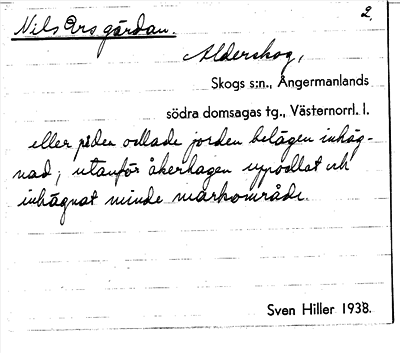 Nils Ers gärdan. 2.
Alderskog,
Skogs s:n., Ångermanlands
södra domsagas tg., Västernorrl. l.
eller på den odlade jorden belägen inhäg-
nad; utanför åkerhagen uppodlat och
inhägnat mindre markområde.
Sven Hiller 1938.